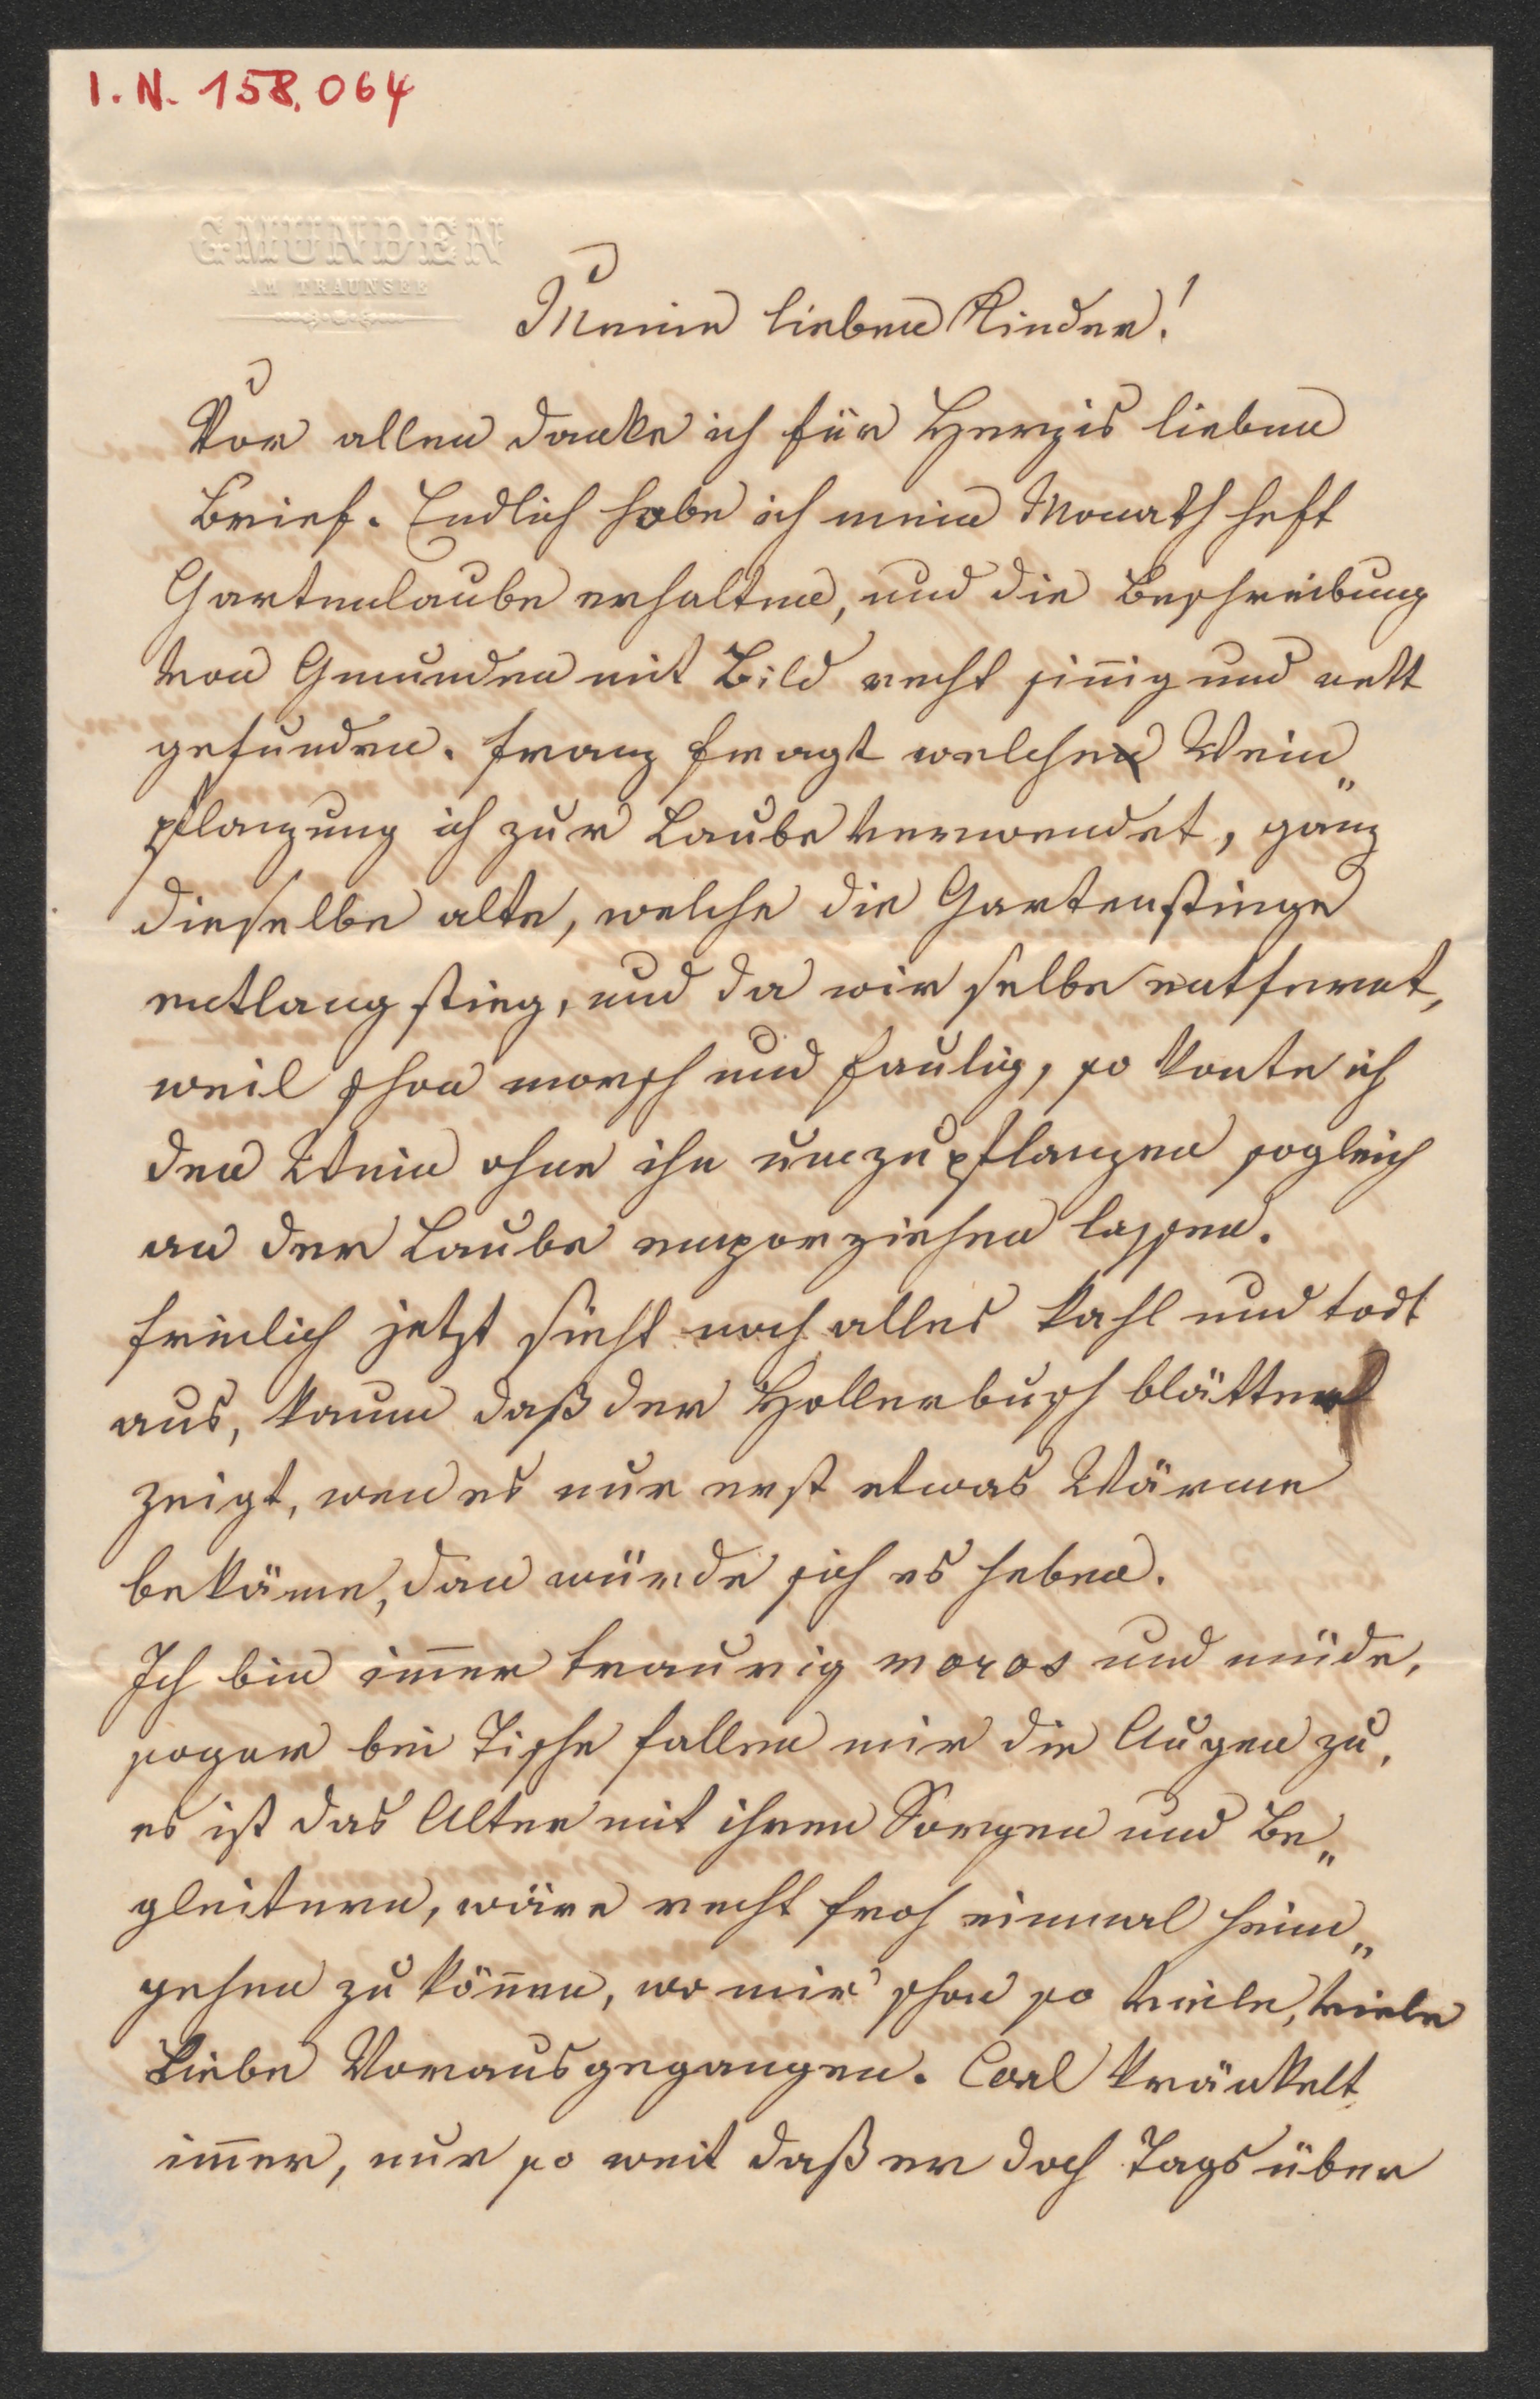 I. N. 158.064
GMUNDEN
AM TRAUNSEE
Meine lieben Kinder!
Vor allen danke ich für Herzis lieben
Brief. Endlich habe ich mein Monath heft
Gartenlaube erhalten, und die Beschreibung
von Gmunden mit Bild recht sinig und nett
gefunden. Franz fragt welchen Wein„
pflanzung ich zur Laube verwendet, ganz
dieselbe alte, welche die Gartenstiege
entlang stieg, und da wir selbe entfernt,
weil schon morsch und faulig, so konte ich
den Wein ohne ihn umzupflanzen sogleich
an der Laube emporziehen lassen.
freilich jetzt sieht noch alles kahl und todt
aus, kaum daß der Hollerbusch blätter
zeigt, wen es nur erst etwas Wärme
bekäme, dan würde sich es heben.
Ich bin imer traurig moros und müde,
sogar bei Tische fallen mir die Augen zu,
es ist das Alter mit ihren Sorgen und Be„
gleitern, wäre recht froh einmal heim„
gehen zu könen, wo mir schon so viele, viele
Liebe Vorausgegangen. Carl kränkelt
imer, nur so weit daß er doch Tags über